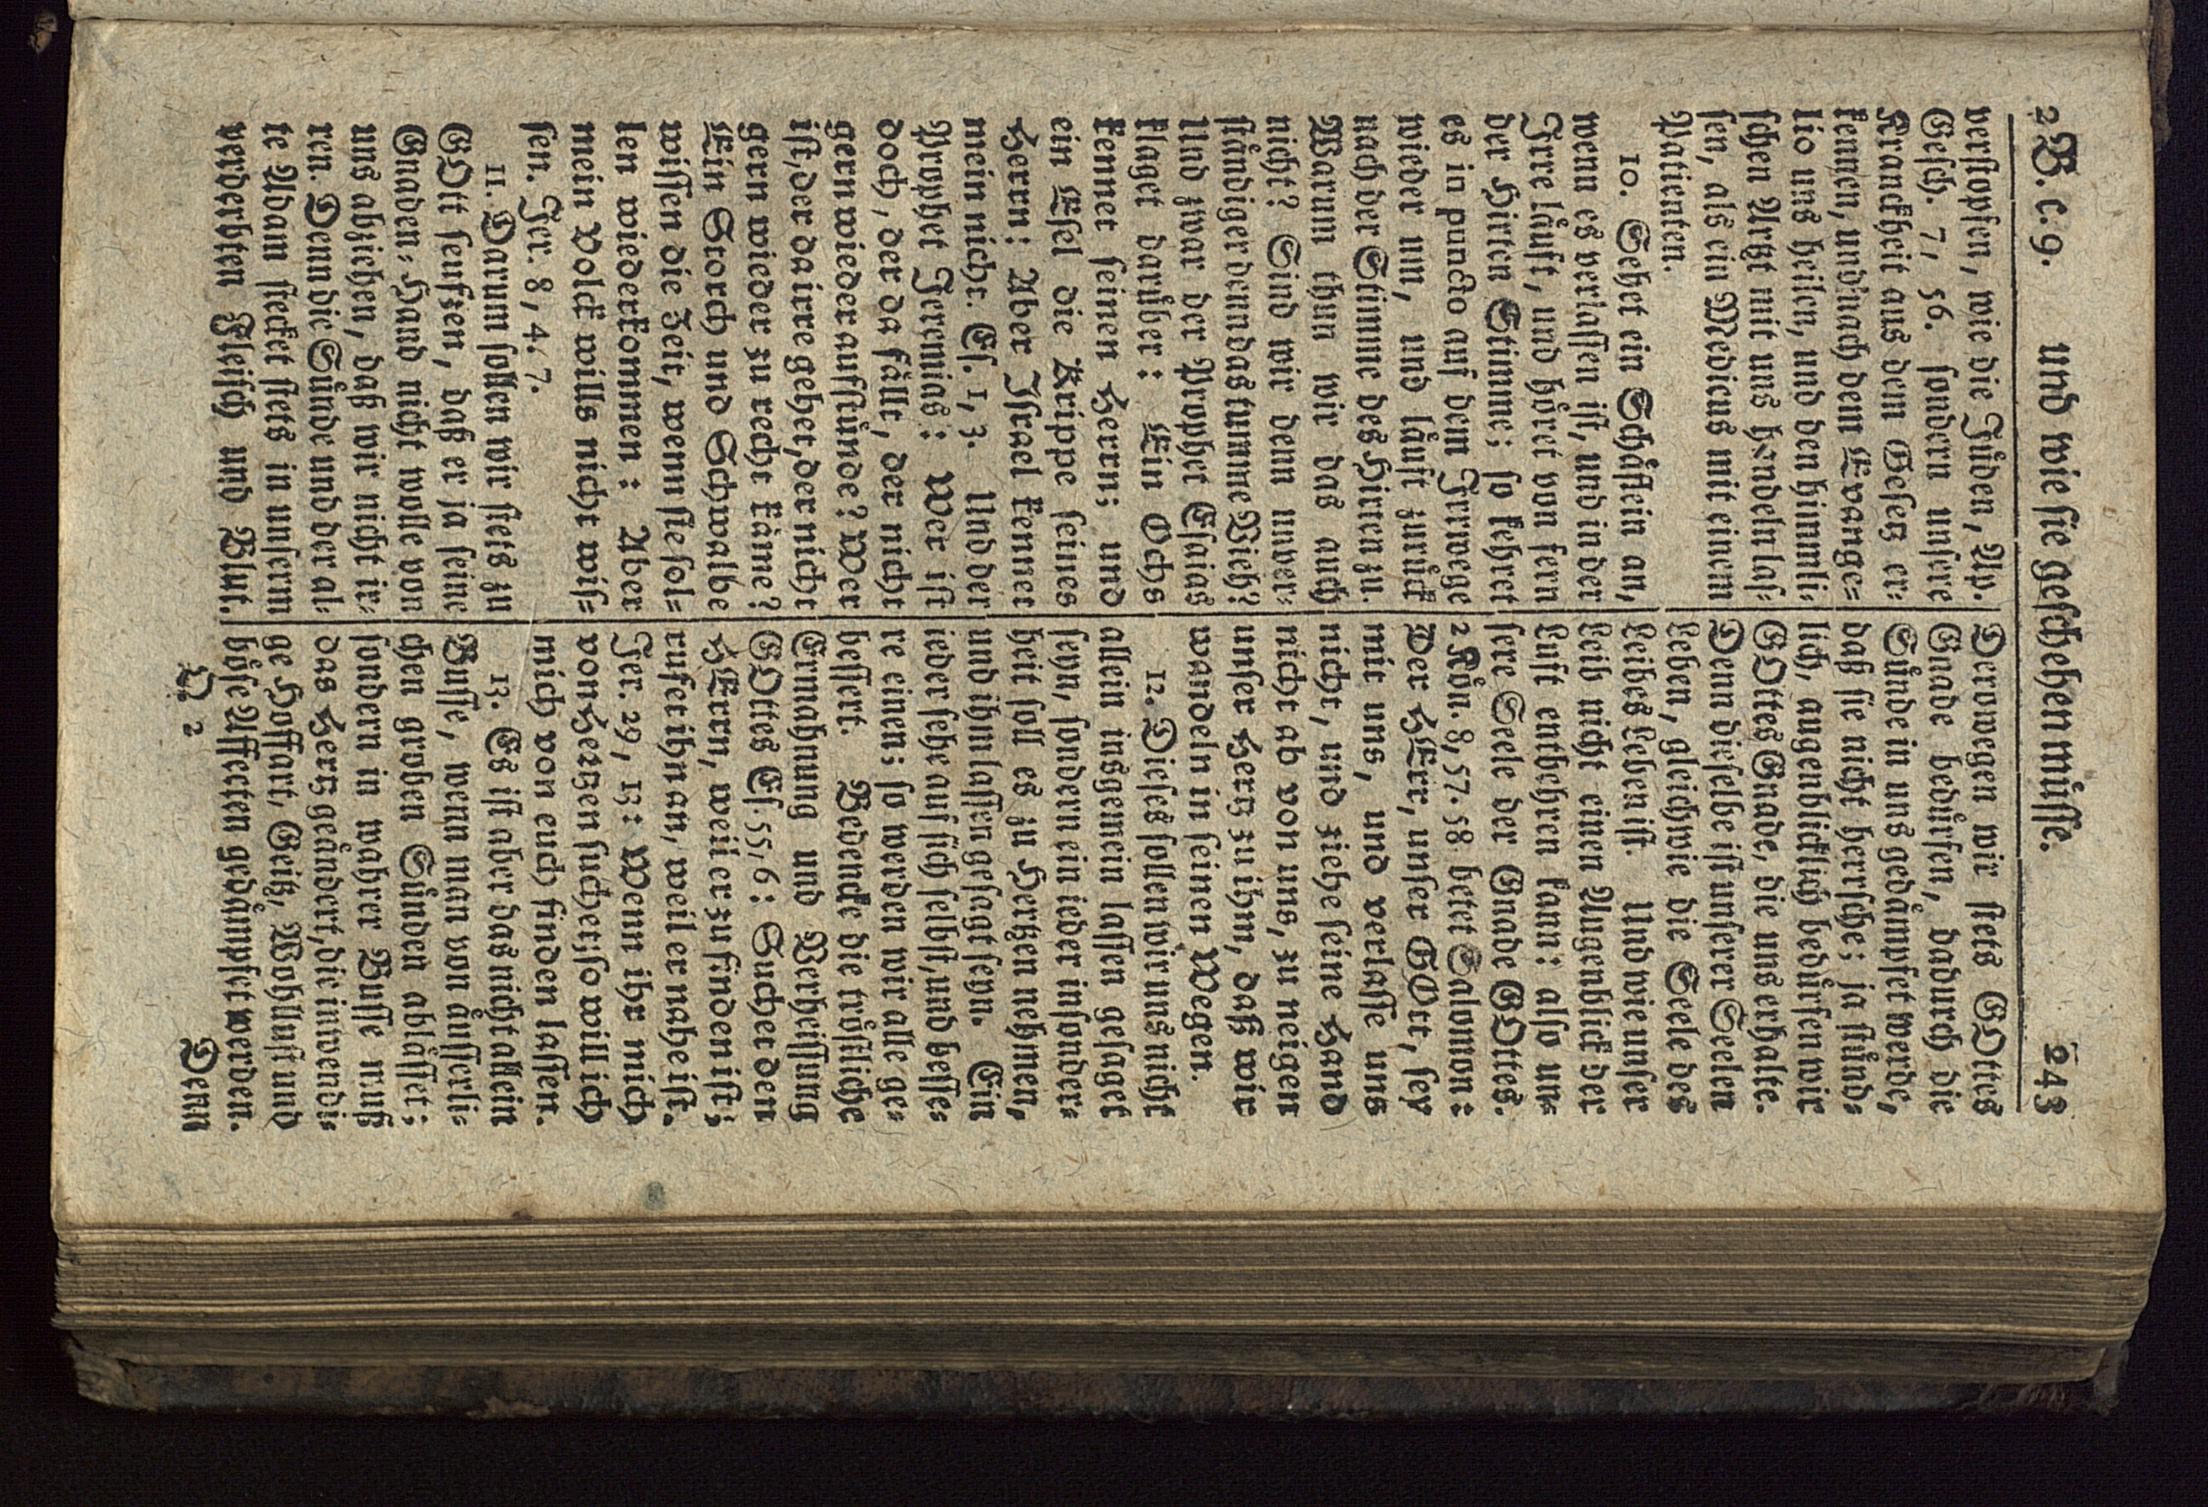 2 B. c. 9. und wie sie geschehen müsse. 243
verstopfen, wie die Jüden, Ap.
Gesch. 7, 56. sondern unsere
Kranckheit aus dem Gesetz er-
kennen, und nach dem Evange-
lio uns heilen, und den himmli-
schen Artzt mit uns handeln las-
sen, als ein Medicus mit einem
Patienten.
10. Sehet ein Schäflein an,
wenn es verlassen ist, und in der
Irre läuft, und höret von fern
der Hirten Stimme; so kehret
es in puncto auf dem Irrwege
wieder um, und läuft zurück
nach der Stimme des Hirten zu.
Warum thun wir das auch
nicht? Sind wir denn unver-
ständiger denn das tumme Vieh?
Und zwar der Prophet Esaias
klaget darüber: Ein Ochs
kennet seinen Herrn; und
ein Esel die Krippe seines
Herrn: Aber Israel kennet
mein nicht. Es. 1, 3. Und der
Prophet Jeremias: Wer ist
doch, der da fällt, der nicht
gern wieder aufstünde? Wer
ist, der da irre gehet, der nicht
gern wieder zu recht käme?
Ein Storch und Schwalbe
wissen die Zeit, wenn sie sol-
len wiederkommen: Aber
mein Volck wills nicht wis-
sen. Jer. 8, 4. 7.
11. Darum sollen wir stets zu
GOtt seufzen, daß er ja seine
Gnaden-Hand nicht wolle von
uns abziehen, daß wir nicht ir-
ren. Denn die Sünde und der al-
te Adam stecket stets in unserm
verderbten Fleisch und Blut.
Derowegen wir stets GOttes
Gnade bedürfen, dadurch die
Sünde in uns gedämpfet werde,
daß sie nicht herrsche; ja stünd-
lich, augenblicklich bedürfen wir
GOttes Gnade, die uns erhalte.
Denn dieselbe ist unserer Seelen
Leben, gleichwie die Seele des
Leibes Leben ist. Und wie unser
Leib nicht einen Augenblick der
Luft entbehren kann: also un-
sere Seele der Gnade GOttes.
2 Kön. 8, 57. 58 betet Salomon:
Der HErr, unser GOtt, sey
mit uns, und verlasse uns
nicht, und ziehe seine Hand
nicht ab von uns, zu neigen
unser Hertz zu ihm, daß wir
wandeln in seinen Wegen.
12. Dieses sollen wir uns nicht
allein insgemein lassen gesaget
seyn, sondern ein ieder insonder-
heit soll es zu Hertzen nehmen,
und ihm lassen gesagt seyn. Ein
ieder sehe auf sich selbst, und besse-
re einen; so werden wir alle ge-
bessert. Bedencke die tröstliche
Ermahnung und Verheissung
GOttes Es. 55, 6: Suchet den
HErrn, weil er zu finden ist;
rufet ihn an, weil er nahe ist.
Jer. 29, 13: Wenn ihr mich
von Hertzen suchet, so will ich
mich von euch finden lassen.
13. Es ist aber das nicht allein
Busse, wenn man von äusserli-
chen groben Sünden ablässet;
sondern in wahrer Busse muß
das Hertz geändert, die inwendi-
ge Hoffart, Geitz, Wohllust und
böse Affecten gedämpfet werden.
Q 2 Denn